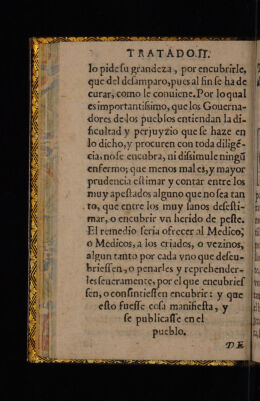 TRATADO.II.
lo pide su grandeza, por encubrirle,
que del desamparo, pues al fin se ha de
curar, como le conuiene. Por lo qual
es importantissimo, que los Gouerna-
dores de los pueblos entiendan la di-
ficultad y perjuyzio que se haze en
lo dicho, y procuren con toda diligẽ-
cia, no se encubra, ni dissimule ningũ
enfermo; que menos mal es, y mayor
prudencia estimar y contar entre los
muy apestados alguno que no sea tan
to, que entre los muy sanos desesti-
mar, o encubrir vn herido de peste.
El remedio seria ofrecer al Medico,
o Medicos, a los criados, o vezinos,
algun tanto por cada vno que descu-
briessen, o penarles y reprehender-
les seueramente, por el que encubries
sen, o consintiessen encubrir: y que
esto fuesse cosa manifiesta, y
se publicasse en el
pueblo.
DE